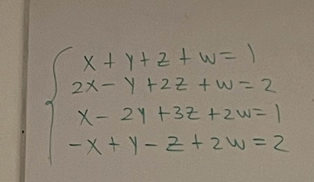 x + y + z + w = 1
2x - y + 2z + w = 2
x - 2y + 3z + 2w = 1
-x + y - z + 2w = 2